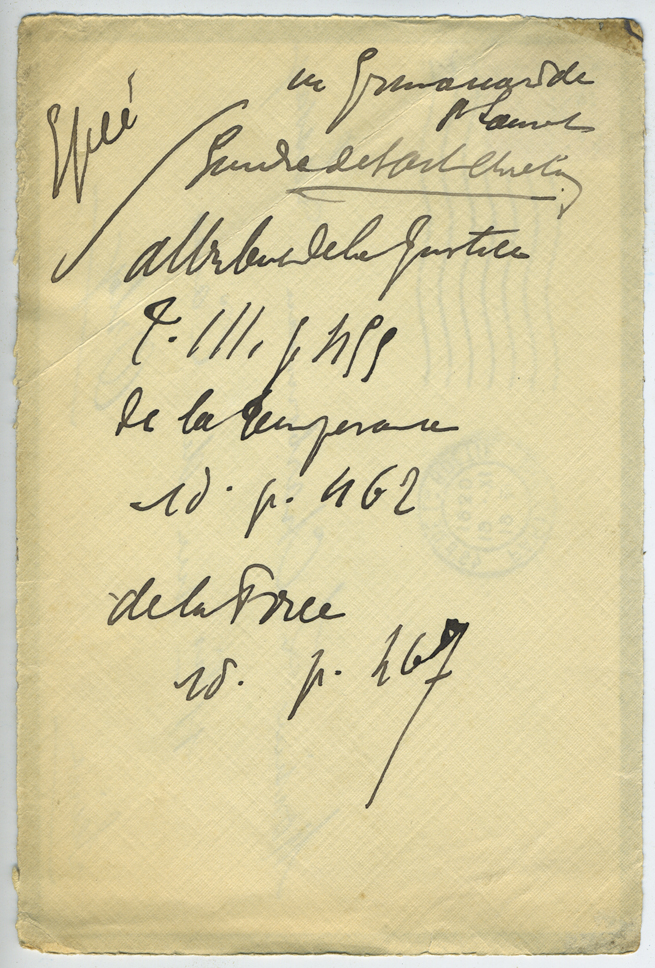 Epée
Grimouard de
St Laurent
Guide de l'art chrétien
attribut de la Justice
T. III, p 459
de la Temperance
id. p. 462
de la Force
id. p. 467